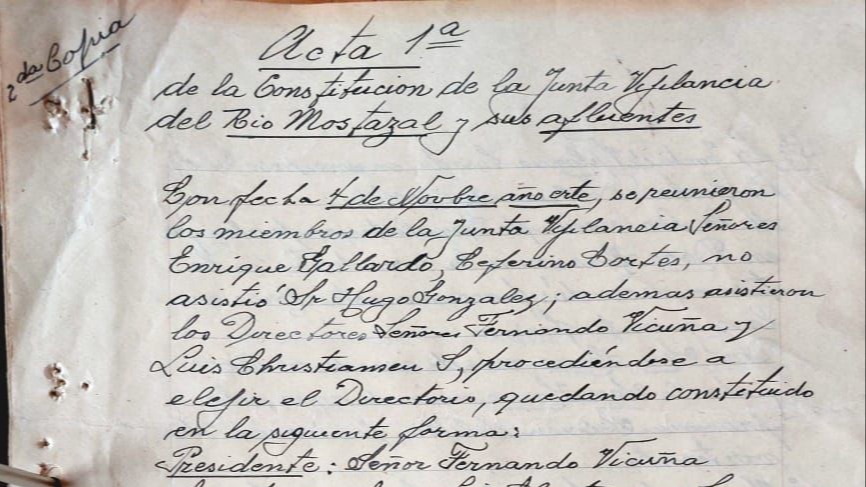 2da Copia
Acta 1ª
de la Constitucion de la Junta Vijilancia
del Rio Mostazal y sus afluentes
Con fecha 4 de Novbre año cte, se reunieron
los miembros de la Junta Vijilancia Señores
Enrique Gallardo, Ceferino Cortes, no
asistió Sr Hugo Gonzalez; ademas asistieron
los Directores Señores Fernando Vicuña y
Luis Christiansen S, procediéndose a
elejir el Directorio, quedando constituido
en la siguiente forma:
Presidente: Señor Fernando Vicuña